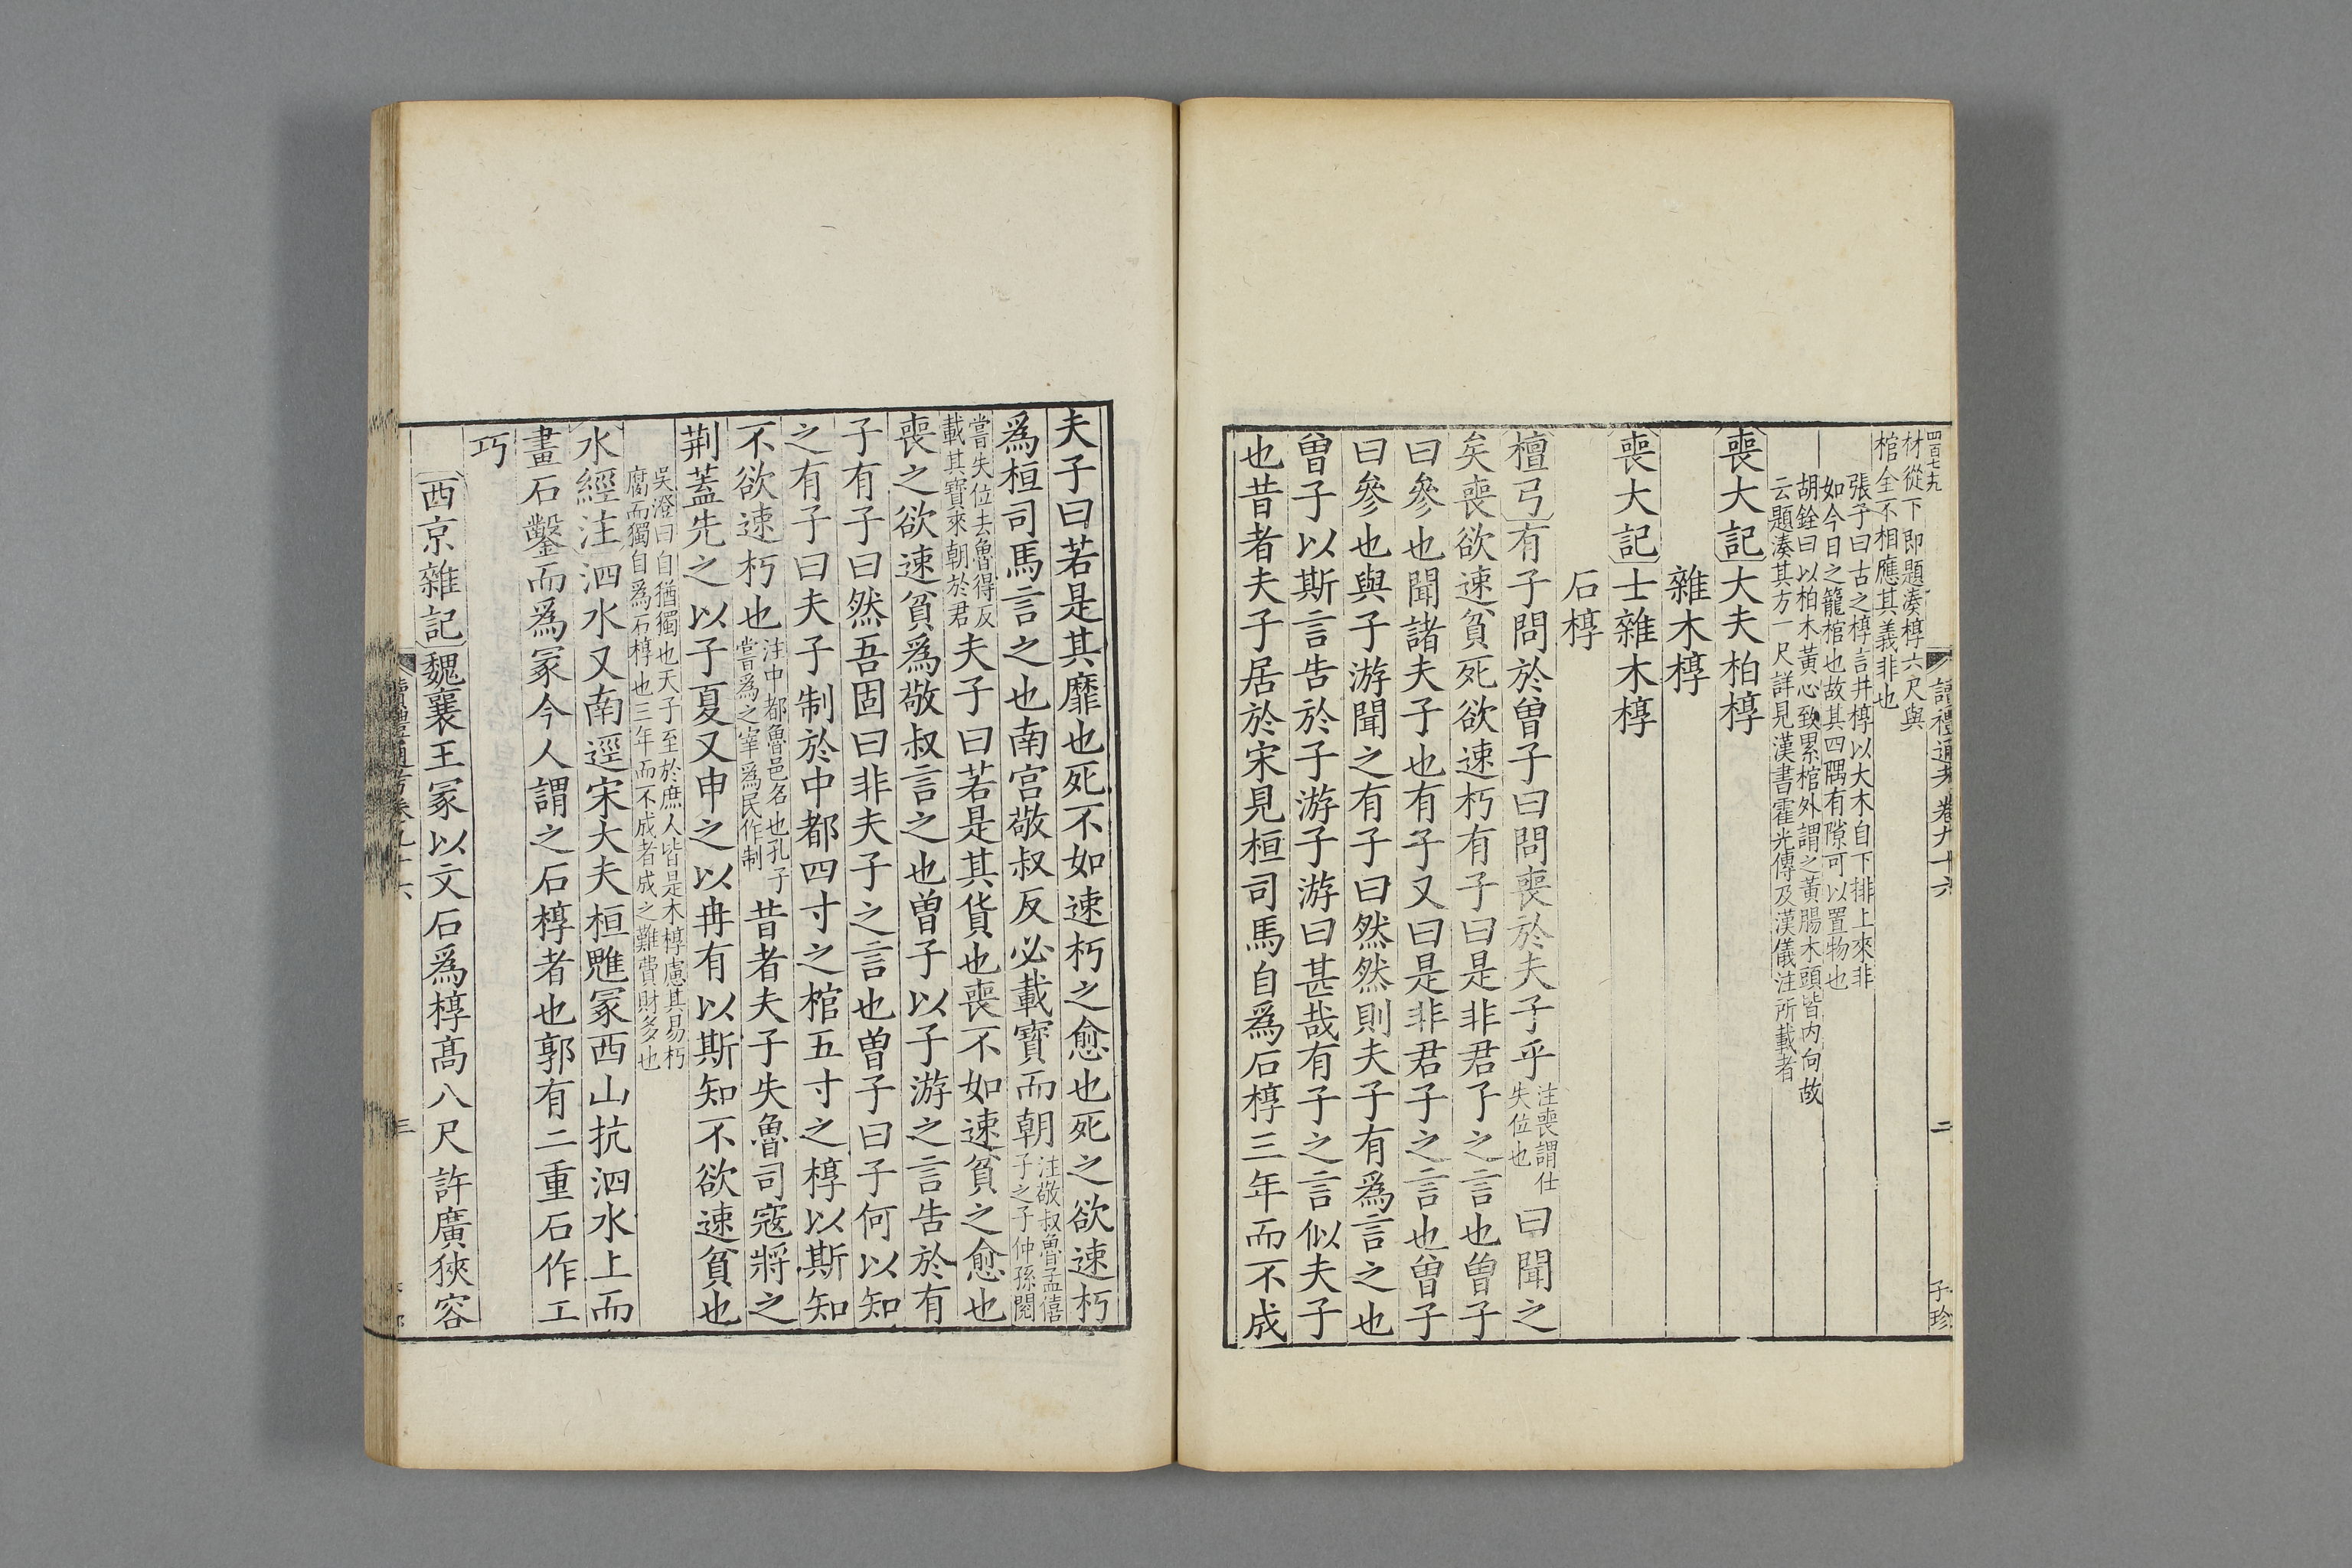 四百七十九
讀禮通考卷九十六
二
子珍
材從下即題湊椁六尺與
棺全不相應其義非也
張子曰古之椁言井椁以大木自下排上來非
如今日之籠棺也故其四隅有隙可以置物也
胡銓曰以柏木黃心致累棺外謂之黃腸木頭皆内向故
云題湊其方一尺詳見漢書霍光傳及漢儀注所載者
喪大記大夫柏椁
雜木椁
喪大記士雜木椁
石椁
檀弓有子問於曽子曰問喪於夫子乎注喪謂仕失位也曰聞之
矣喪欲速貧死欲速朽有子曰是非君子之言也曽子
曰參也聞諸夫子也有子又曰是非君子之言也曽子
曰參也與子游聞之有子曰然然則夫子有爲言之也
曽子以斯言告於子游子游曰甚哉有子之言似夫子
也昔者夫子居於宋見桓司馬自爲石椁三年而不成
夫子曰若是其靡也死不如速朽之愈也死之欲速朽
爲桓司馬言之也南宫敬叔反必載寶而朝注敬叔魯孟僖子之子仲孫閱
嘗失位去魯得反載其寶來朝於君夫子曰若是其貨也喪不如速貧之愈也
喪之欲速貧爲敬叔言之也曽子以子游之言告於有
子有子曰然吾固曰非夫子之言也曽子曰子何以知
之有子曰夫子制於中都四寸之棺五寸之椁以斯知
不欲速朽也注中都魯邑名也孔子嘗爲之宰爲民作制昔者夫子失魯司寇將之
荆蓋先之以子夏又申之以冉有以斯知不欲速貧也
吳澄曰自猶獨也天子至於庶人皆是木椁慮其易朽
腐而獨自爲石椁也三年而不成者成之難費財多也
水經注泗水又南逕宋大夫桓魋冢西山抗泗水上而
畫石鑿而爲冢今人謂之石椁者也郭有二重石作工
巧
西京雜記魏襄王冢以文石爲椁髙八尺許廣狹容
讀禮通考卷九十六
三